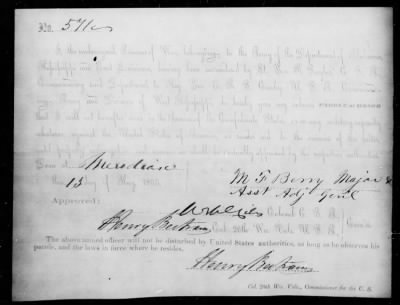 No. 571
I, the undersigned Prisoner of War, belonging to the Army of the Department of Alabama,
Mississippi and East Louisiana, having been surrendered by Lt. Gen. R. Taylor, C. S. A.,
Commanding said Department to Maj. Gen. E. R. S. Canby, U. S. A., Command-
ing Army and Division of West Mississippi, do hereby give my solemn PAROLE OF HONOR
that I will not hereafter serve in the Armies of the Confederate States, or in any military capacity
whatever, against the United States of America,
until properly exchanged, in such manner as shall be mutually approved by the respective authorities.
Done at Meridian
13 day of May 1865.
M F Berry Major &
Asst Adj Genl
Approved:
Colonel C. S. A.
Henry Bertram Col. 20th Wis. Vols. U. S. A.
The above named officer will not be disturbed by United States authorities, as long as he observes his
parole, and the laws in force where he resides.
Henry Bertram
Col. 20th Wis. Vols., Commissioner for the U. S.